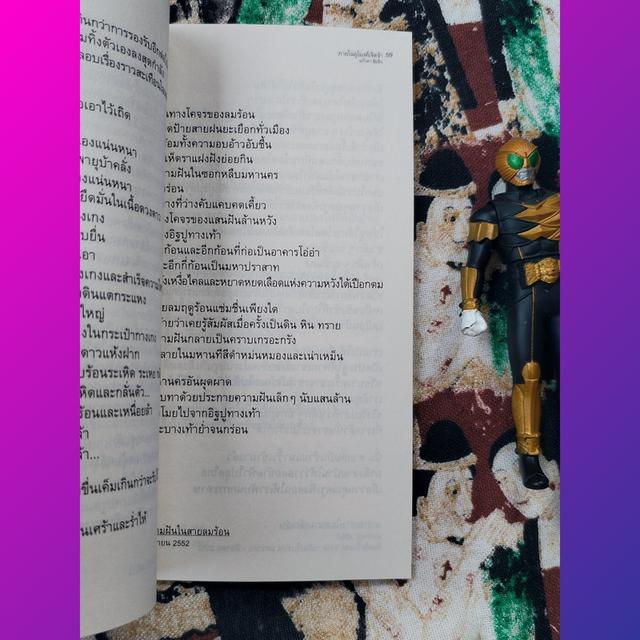 ดินกว่าการรองรับอีก
มทิ้งตัวเองลงสุดกำลัง
ลอบเรื่องราวสะเทือน
อเอาไว้เถิด
องแน่นหนา
พายุบ้าคลั่ง
องแน่นหนา
ยึดมั่นในเนื้อดวง
งเกง
บยื่น
อา
งเกงและสำเร็จความ
วดินแตกระแหง
ใหญ่
งในกระเป๋ากางเกง
ดาวแห้งฝาก
บร้อนระเหิด ระเหย
หิดและกลั่นตัว...
ร้อนและเหนื่อยล้า
ล้า
ล้า...
ขื่นเค็มเกินกว่าจะ
นเศร้าและร่ำไห้
59
นทางโคจรของลมร้อน
ดป้ายสายฝนยะเยือกทั่วเมือง
อมทั้งความอบอ้าวอับชื้น
เห็ดราแฝงฝังย่อยกิน
ามฝันในซอกหลืบมหานคร
ร่อน
างที่ว่างคับแคบคดเคี้ยว
งโคจรของแสนฝันล้านหวัง
งอิฐปูทางเท้า
ก้อนและอีกก้อนที่ก่อเป็นอาคารโอ่อ่า
ะอีกกี่ก้อนเป็นมหาปราสาท
งเหงื่อไคลและหยาดหยดเลือดแห่งความหวังได้เปือกตม
ยลมฤดูร้อนแช่มชื่นเพียงใด
ว่าเคยรู้สัมผัสเมื่อครั้งเป็นดิน หิน ทราย
ามฝันกลายเป็นคราบเกรอะกรัง
ลายในมหานทีสีดำหม่นหมองและเน่าเหม็น
านครอันผุดผาด
บทาด้วยประกายความฝันเล็กๆ นับแสนล้าน
โมยไปจากอิฐปูทางเท้า
ะบางเท้าย่ำจนกร่อน
ามฝันในสายลมร้อน
ายน 2552